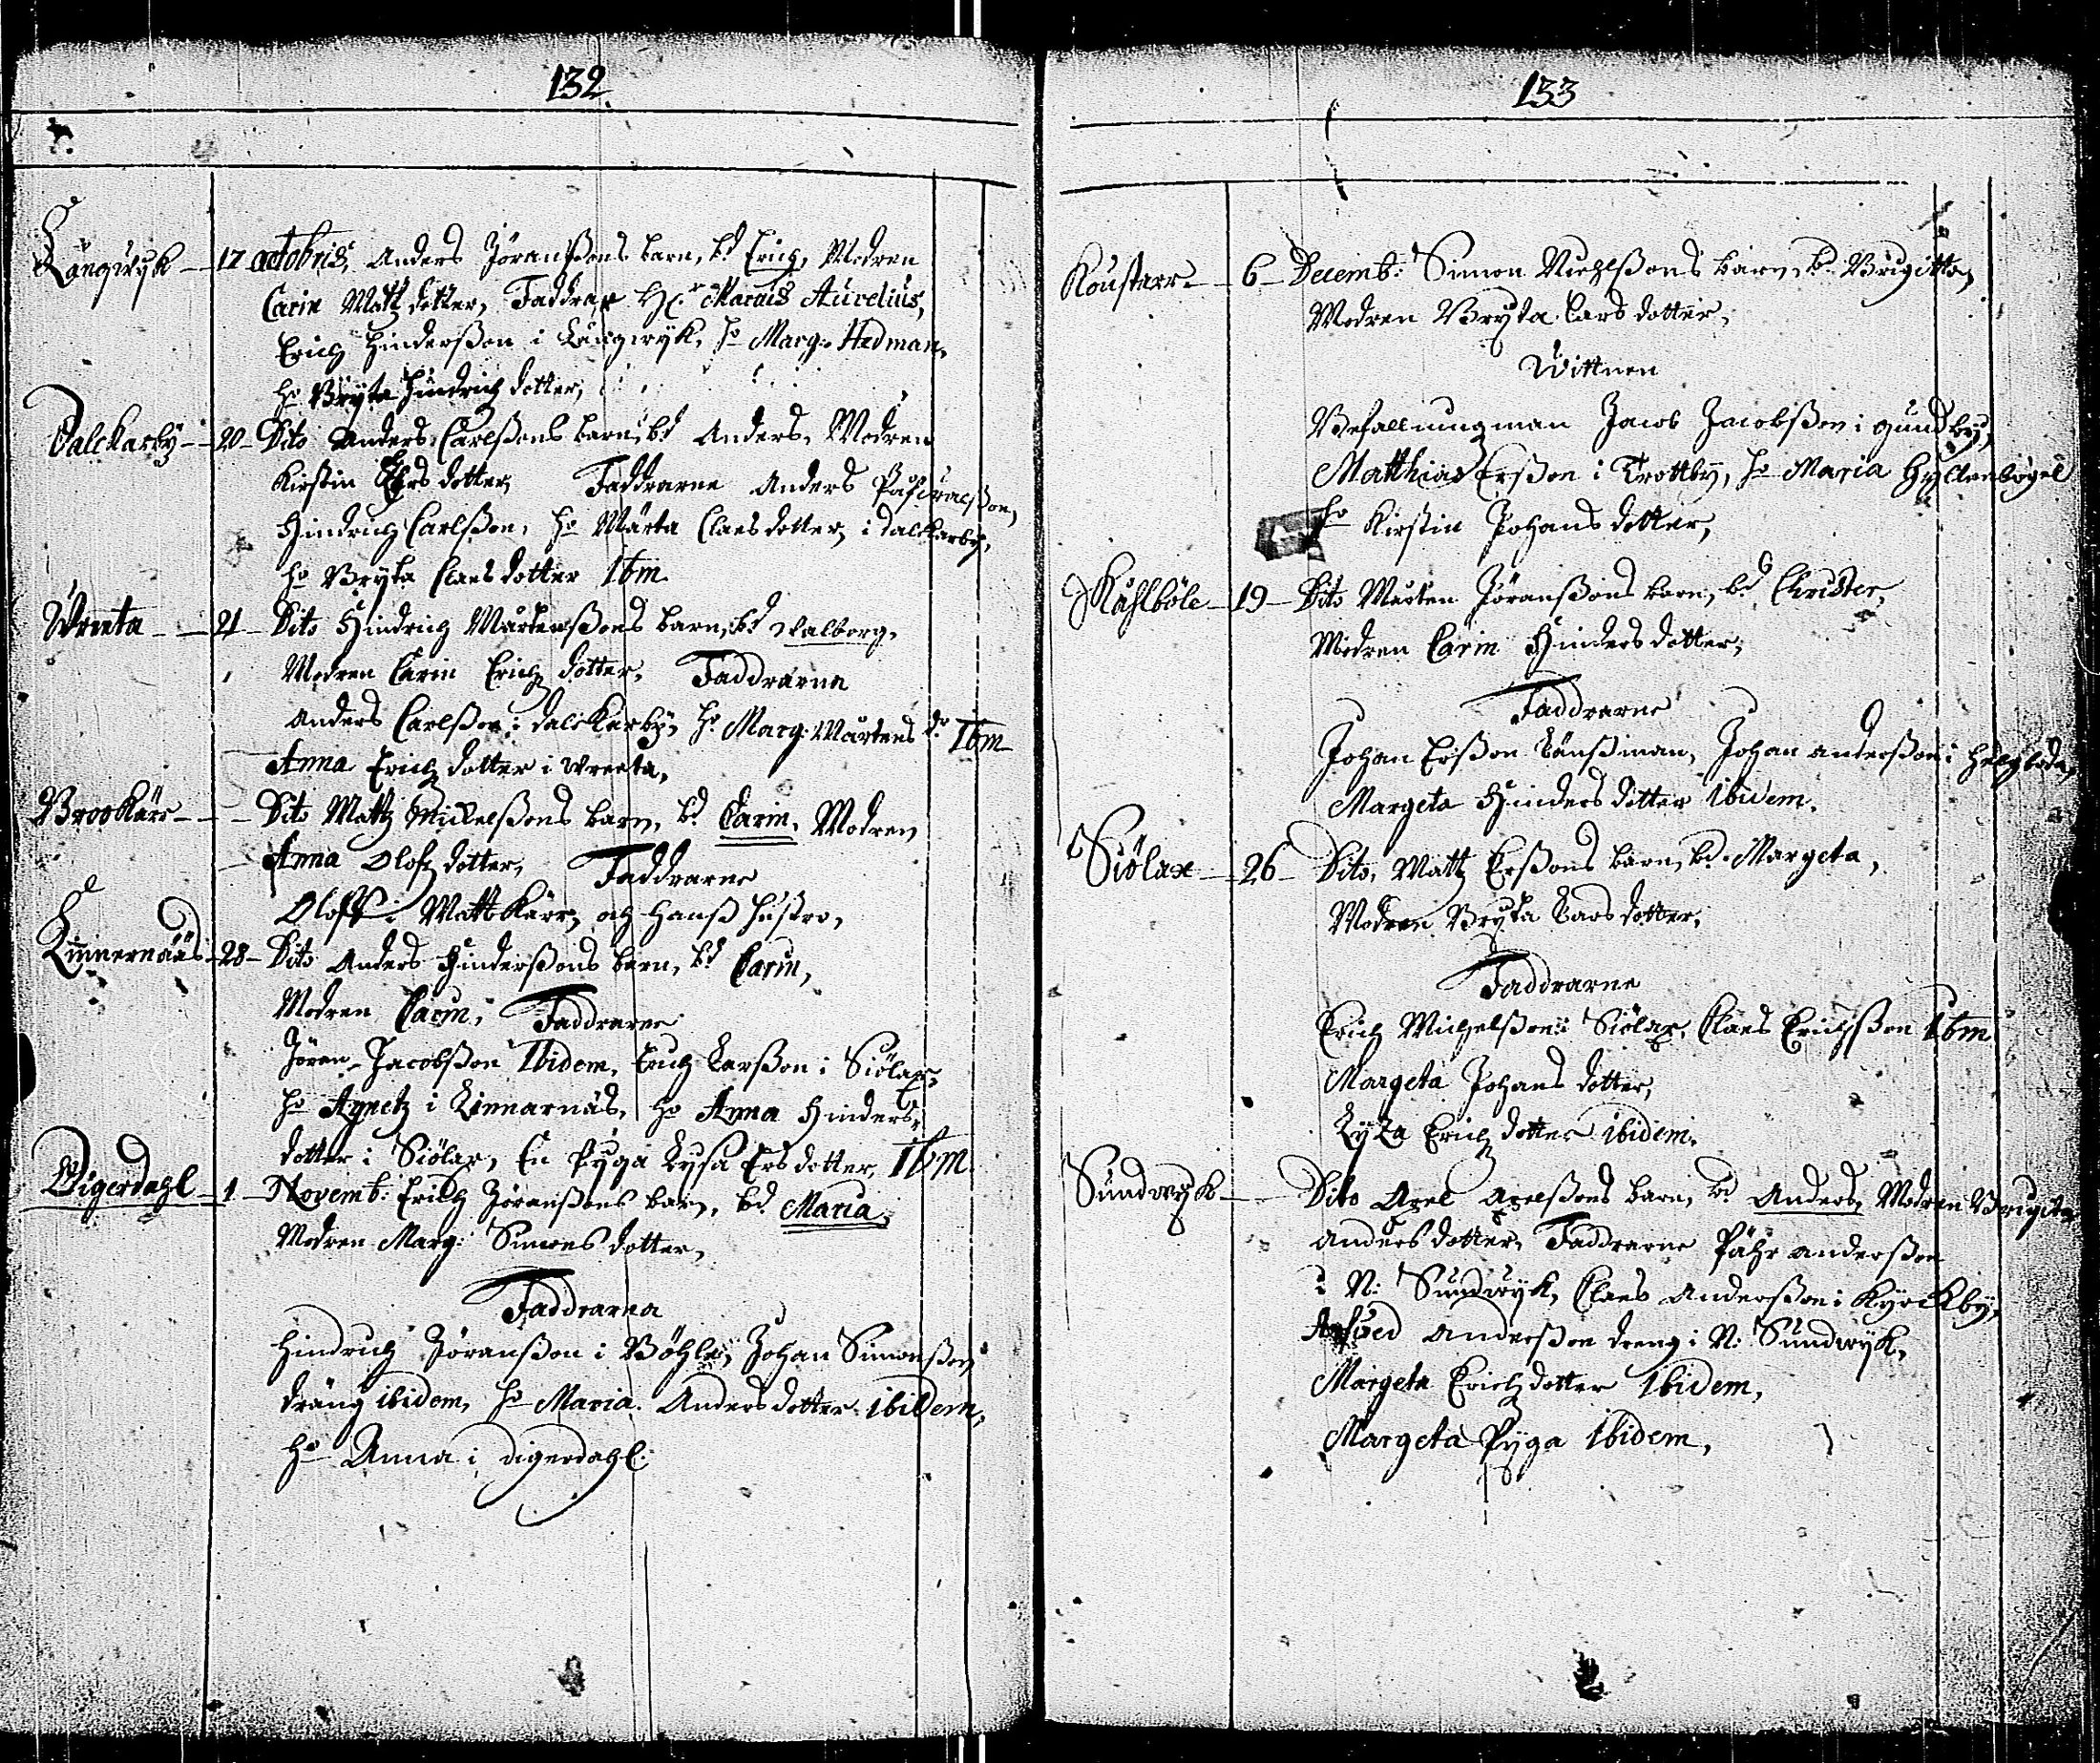 132
Långwyk - 17 octobris, Anders Jöranßons barn, bd Erich, Modren
Carin Matz dotter, Faddrar Hr Marcus Aurelius,
Erich Hinderßon i Långwyk, ho Marg: Hedman,
ho Bryta Hindrich dotter,
Dalckarby - 20 - Dito Anders Carlßons barn, bd Anders, Modren
Kirstin Ers dotter, Faddrarne Anders
Hindrich Carlßon, ho Märta Claes dotter, i Dalckarby,
ho Bryta Claes dotter Ibm.
Wreeta - 21 - Dito Hindrich Mårtenßons barn, bd Walborg,
Modren Carin Erich dotter, Faddrarne
Anders Carlßon i Dalckarby, ho Marg: Mårtens dr Ibm
Anna Erich dotter i Wreeta,
Brookärr - - Dito Matz Mickelßons barn, bd Carin, Modren
Anna Olofz dotter, Faddrarne
Oloff i Mattkärr, och hans hustro,
Linnernääs - 28 - Dito Anders Hinderßons barn, bd Carin,
Modren Carin, Faddrarne
Jören Jacobßon Ibidem, Erich Larßon i Siölax,
ho Agnetz i Linnarnäs, ho Anna Hinders
dotter i Siölax, En Pyga Lysa Ers dotter, Ibm.
Digerdahl - 1 - Novemb: Erich Jöranßons barn, bd Maria,
Modren Marg: Simons dotter,
Faddrarna
Hindrich Jöranßon i Böhle, Johan Simonßon
dräng ibidem, ho Maria Anders dotter ibidem,
ho Anna i Digerdahl:
133
Koustarr - 6 - Decemb: Simon Michelßons barn, b. Brigitta,
Modren Bryta Lars dotter,
Wittnen
Befallningman Jacob Jacobßon i Gundby,
Matthias Erßon i Trottby, ho Maria Gyllenbögel
ho Kirstin Johans dotter,
Kåhlböle - 19 - Dito Mårten Jöranßons barn, bd Christer,
Modren Carin Hinders dotter,
Faddrarne
Johan Erßon Länßman, Johan Anderßon i
Margeta Hinders dotter Ibidem.
Siölax - 26 - Dito, Matz Erßons barn, bd Margeta,
Modren Bryta Lars dotter,
Faddrarne
Erich Michelßon i Siölax, Claes Erichßon Ibm
Margeta Johans dotter,
Lyza Erich dotter ibidem.
Sundwyk - Dito Axel Axelßons barn, bd Anders, Modren Brigita
Anders dotter, Faddrarne Påhr Anderßon
i N: Sundwyk, Claes Anderßon i Kyrckby,
Anderßon dreng i N: Sundwyk,
Margeta Erich dotter Ibidem,
Margeta Pyga Ibidem,